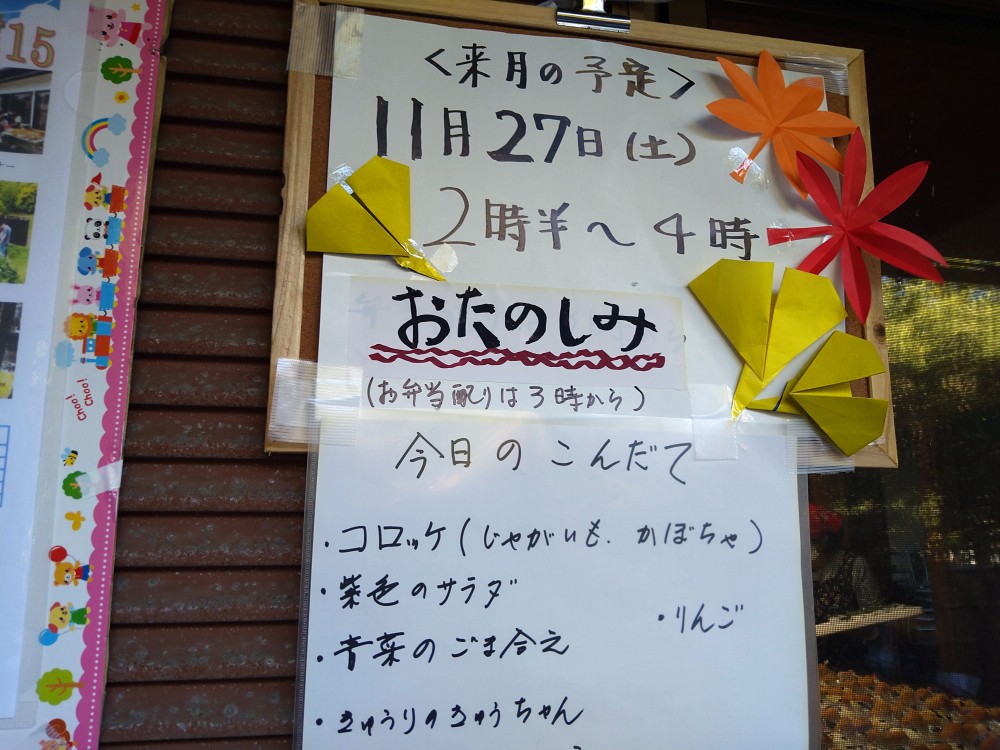 15
Choo!
Choo!
<来月の予定>
11月27日(土)
2時半〜4時
おたのしみ
(お弁当配りは3時から)
今日のこんだて
・コロッケ(じゃがいも.かぼちゃ)
・紫色のサラダ
・りんご
・青菜のごま合え
・きゅうりのきゅうちゃん